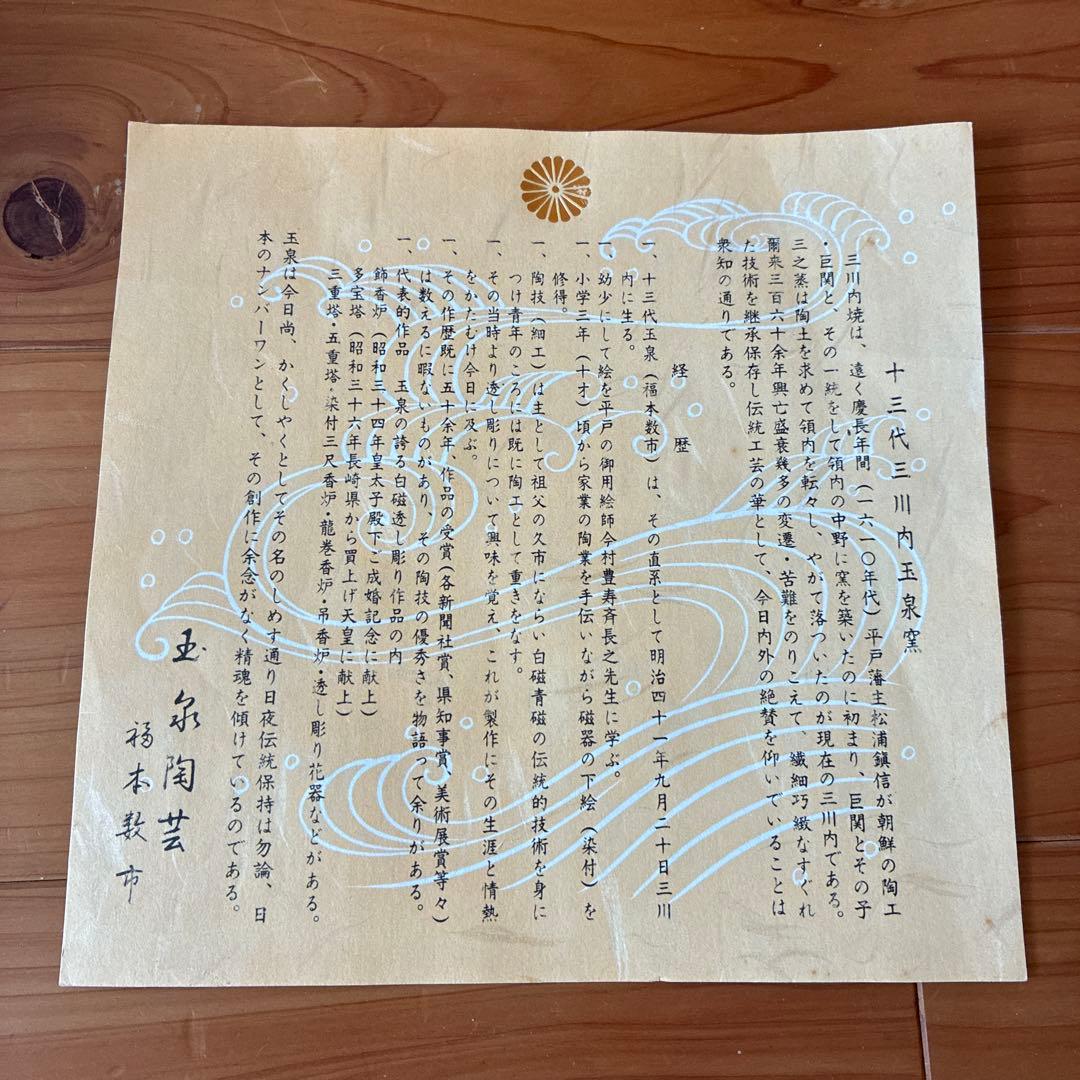 十三代三川内玉泉窯
三川内焼は、遠く慶長年間(一六一〇年代)平戸藩主松浦鎮信が朝鮮の陶工
・巨関と、その一統をして領内の中野に窯を築いたのに初まり、巨関とその子
三之蒸は陶土を求めて領内を転々し、やがて落ついたのが現在の三川内である。
爾来三百六十余年興亡盛衰幾多の変遷・苦難をのりこえて、繊細巧緻なすぐれ
た技術を継承保存し伝統工芸の華として、今日内外の絶賛を仰いでいることは
衆知の通りてある。
経歴
一、十三代玉泉(福本数市)は、その直系として明治四十一年九月二十日三川
内に生る。
一、幼少にして絵を平戸の御用絵師今村豊寿斉長之先生に学ぶ。
一、小学三年(十才)頃から家業の陶業を手伝いながら磁器の下絵(染付)を
修得。
一、陶技(細工)は主として祖父の久市にならい白磁青磁の伝統的技術を身に
つけ青年のころには既に陶工として重きをなす。
一、その当時より透し彫りについて興味を覚え、これが製作にその生涯と情熱
をかたむけ今日に及ぶ。
一、その作歴既に五十余年、作品の受賞(各新聞社賞、県知事賞、美術展賞等々)
は数えるに暇ないものがあり、その陶技の優秀さを物語って余りがある。
一、代表的作品 玉泉の誇る白磁透し彫り作品の内
飾香炉(昭和三十四年皇太子殿下ご成婚記念に献上)
多宝塔(昭和三十六年長崎県から買上げ天皇に献上)
三重塔・五重塔・染付三尺香炉・龍巻香炉・吊香炉・透し彫り花器などがある。
玉泉は今日尚、かくしやくとしてその名のしめす通り日夜伝統保持は勿論、日
本のナンバーワンとして、その創作に余念がなく精魂を傾けているのである。
玉泉陶芸
福本数市